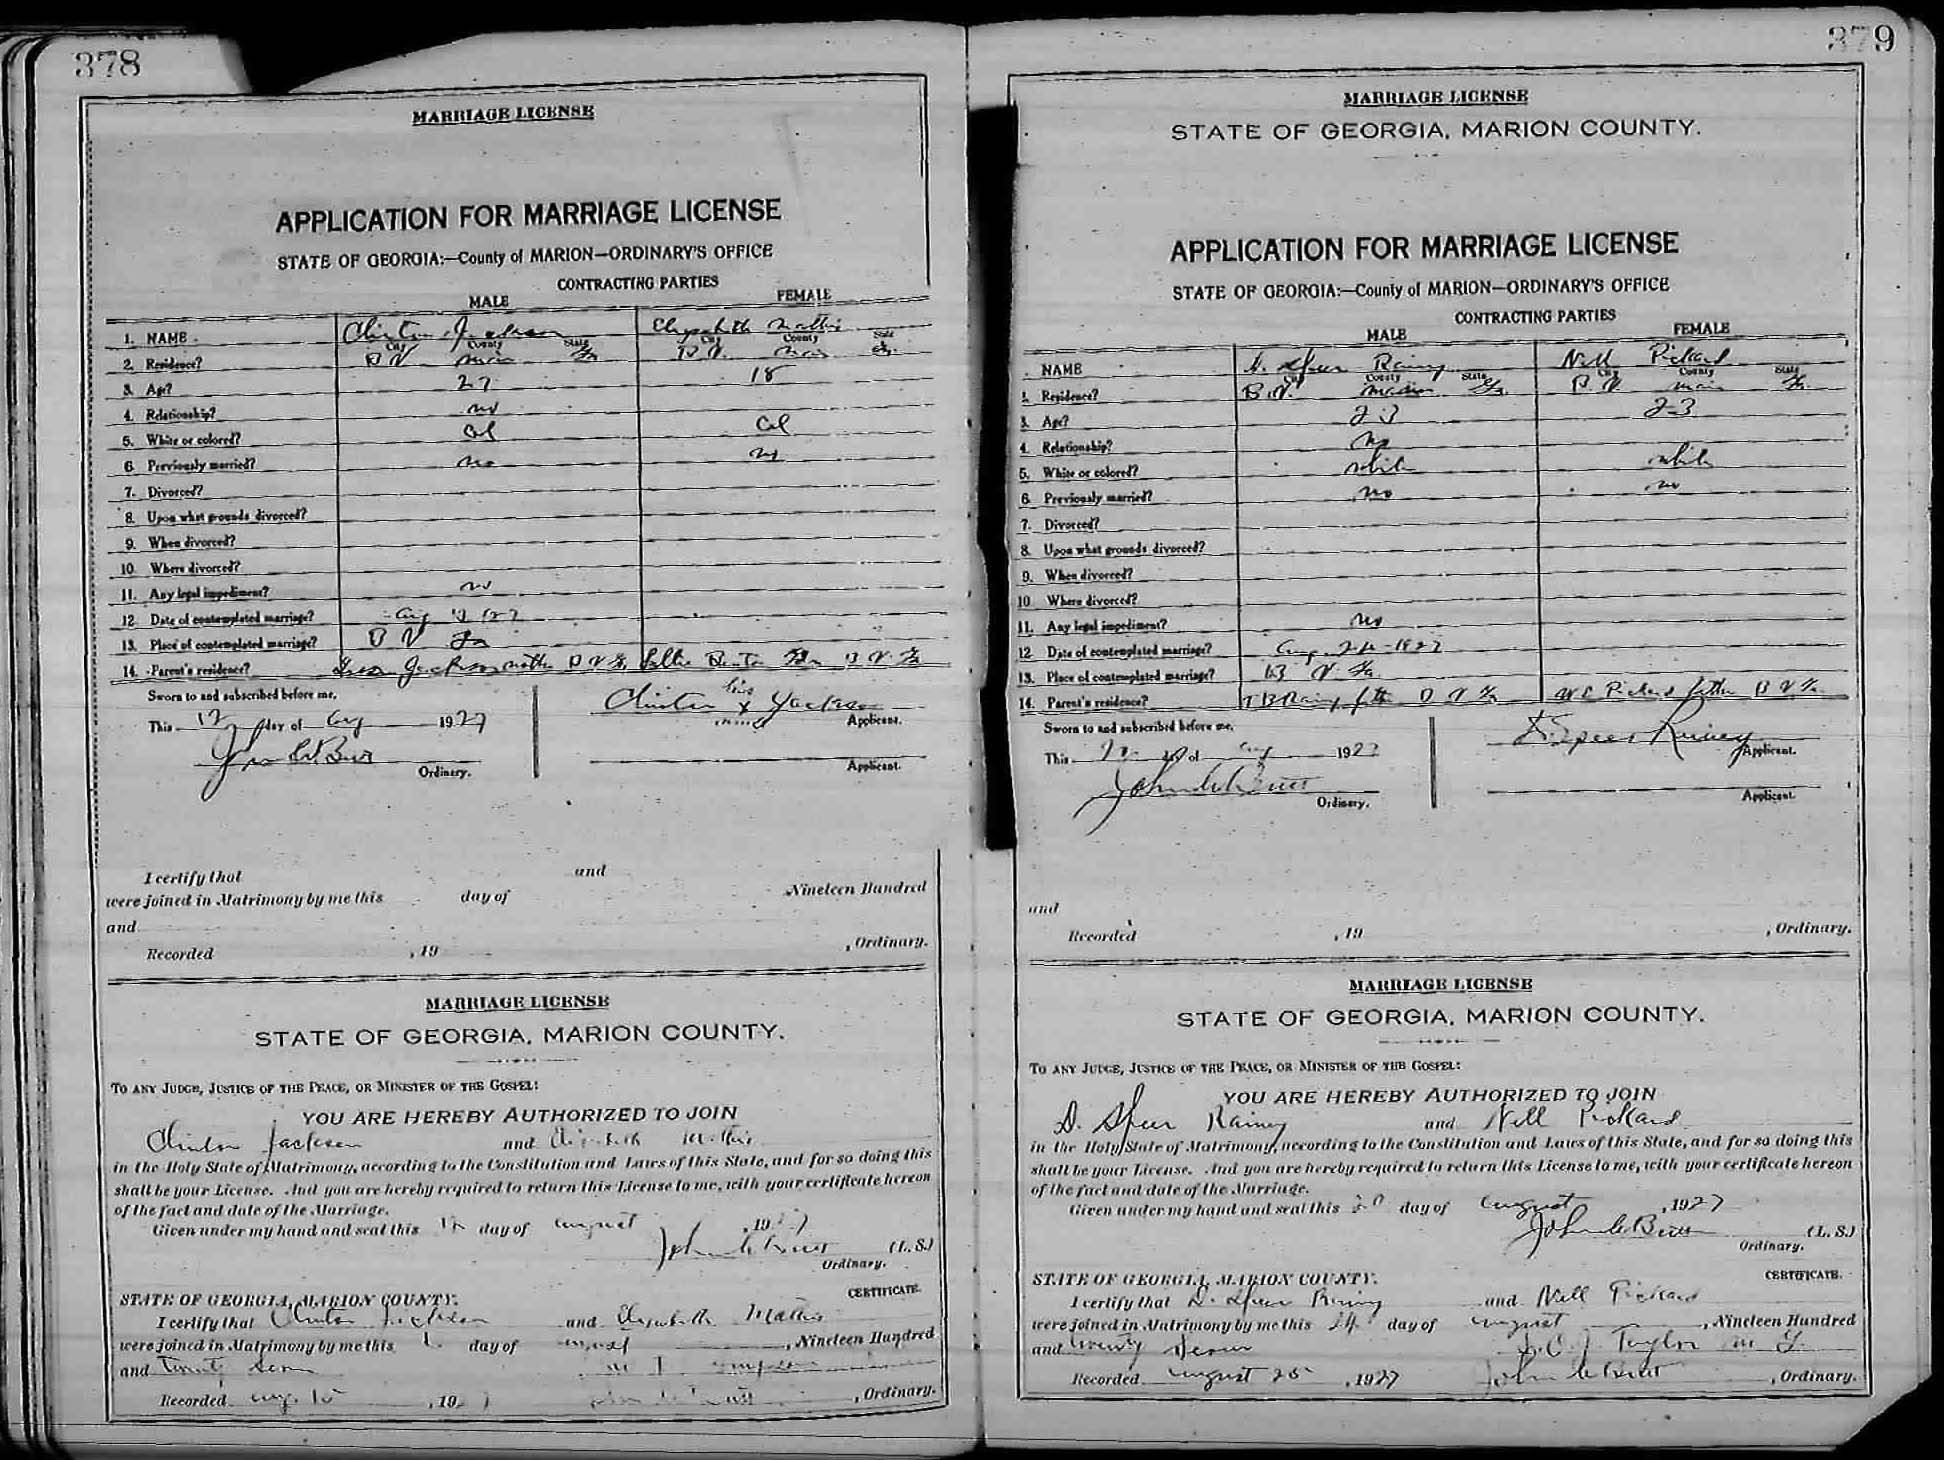 378
MARRIAGE LICENSE
APPLICATION FOR MARRIAGE LICENSE
STATE OF GEORGIA:—County of MARION—ORDINARY'S OFFICE
CONTRACTING PARTIES
MALE FEMALE
1. NAME Clinton Jackson Elizabeth Mathis
City County State City County State
2. Residence? B V Ga B V Ga
3. Age? 27 18
4. Relationship? no
5. White or colored? Col Col
6. Previously married? no no
7. Divorced?
8. Upon what grounds divorced?
9. When divorced?
10. Where divorced?
11. Any legal impediment? no
12. Date of contemplated marriage? Aug
13. Place of contemplated marriage? B V Ga
14. Parent's residence? Jackson mother B V Ga B V Ga
Sworn to and subscribed before me, his
This 12 day of Aug 1927 Clinton x Jackson
mark Applicant.
Ordinary.
Applicant.
I certify that and
were joined in Matrimony by me this day of Nineteen Hundred
and
Recorded , 19 , Ordinary.
MARRIAGE LICENSE
STATE OF GEORGIA, MARION COUNTY.
TO ANY JUDGE, JUSTICE OF THE PEACE, OR MINISTER OF THE GOSPEL:
YOU ARE HEREBY AUTHORIZED TO JOIN
Clinton Jackson and Elizabeth Mathis
in the Holy State of Matrimony, according to the Constitution and Laws of this State, and for so doing this
shall be your License. And you are hereby required to return this License to me, with your certificate hereon
of the fact and date of the Marriage.
Given under my hand and seal this 12 day of august , 1927
John C Butt (L. S.)
Ordinary.
CERTIFICATE.
STATE OF GEORGIA, MARION COUNTY.
I certify that Clinton Jackson and Elizabeth Mathis
were joined in Matrimony by me this day of august , Nineteen Hundred
and twenty seven
Recorded aug. 15 , 192 , Ordinary.
379
MARRIAGE LICENSE
STATE OF GEORGIA, MARION COUNTY.
APPLICATION FOR MARRIAGE LICENSE
STATE OF GEORGIA:—County of MARION—ORDINARY'S OFFICE
CONTRACTING PARTIES
MALE FEMALE
NAME D. Speer Rainey Nell Pickard
City County State City County State
Residence? B.V. Marion Ga B V Ga
3. Age? 23 23
4. Relationship? no
5. White or colored? white white
6. Previously married? no no
7. Divorced?
8. Upon what grounds divorced?
9. When divorced?
10 Where divorced?
11. Any legal impediment? no
12. Date of contemplated marriage? Aug. 24-1927
13. Place of contemplated marriage? B V. Ga
14. Parent's residence? Rainey father B V Ga Pickard father B V Ga
Sworn to and subscribed before me,
This day of aug 1927 D. Speer Rainey
Applicant.
John C Butt
Ordinary.
Applicant.
and
Recorded , 19 , Ordinary.
MARRIAGE LICENSE
STATE OF GEORGIA, MARION COUNTY.
TO ANY JUDGE, JUSTICE OF THE PEACE, OR MINISTER OF THE GOSPEL:
YOU ARE HEREBY AUTHORIZED TO JOIN
D. Speer Rainey and Nell Pickard
in the Holy State of Matrimony, according to the Constitution and Laws of this State, and for so doing this
shall be your License. And you are hereby required to return this License to me, with your certificate hereon
of the fact and date of the Marriage.
Given under my hand and seal this 20 day of august , 1927
John C Butt (L. S.)
Ordinary.
CERTIFICATE.
STATE OF GEORGIA, MARION COUNTY.
I certify that D. Speer Rainey and Nell Pickard
were joined in Matrimony by me this 24 day of august , Nineteen Hundred
and twenty seven Taylor M. G.
Recorded august 25 , 1927 John C Butt , Ordinary.